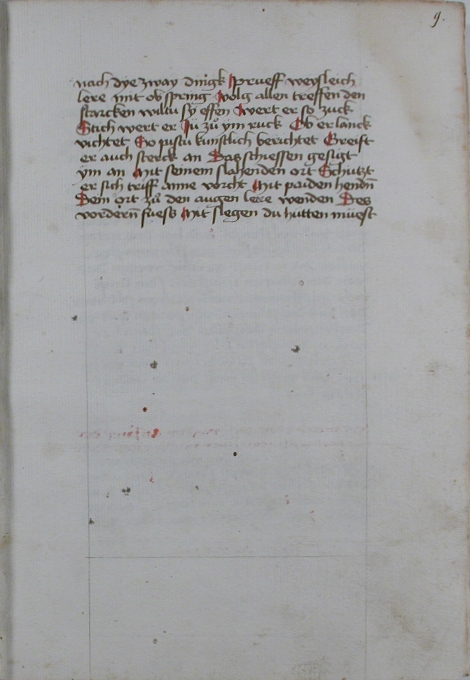 9.
nach dye zway dingk prueff weysleich
lere mit ob spring volg allen treffen den
starcken wiltu sy effen Wert er so zuck
Stich wert er Ju zu ym ruck Ob er lanck
richtet So pistu kunstlich berichtet Greift
er auch sterck an Das schiessen gesigt
ym an Mit seinem slahenden ort Schutzt
er sich triff anne vorcht Mit paiden hendn
Dem ort zů den augen lere wenden Des
vordern fuess Mit slegen du hutten muest